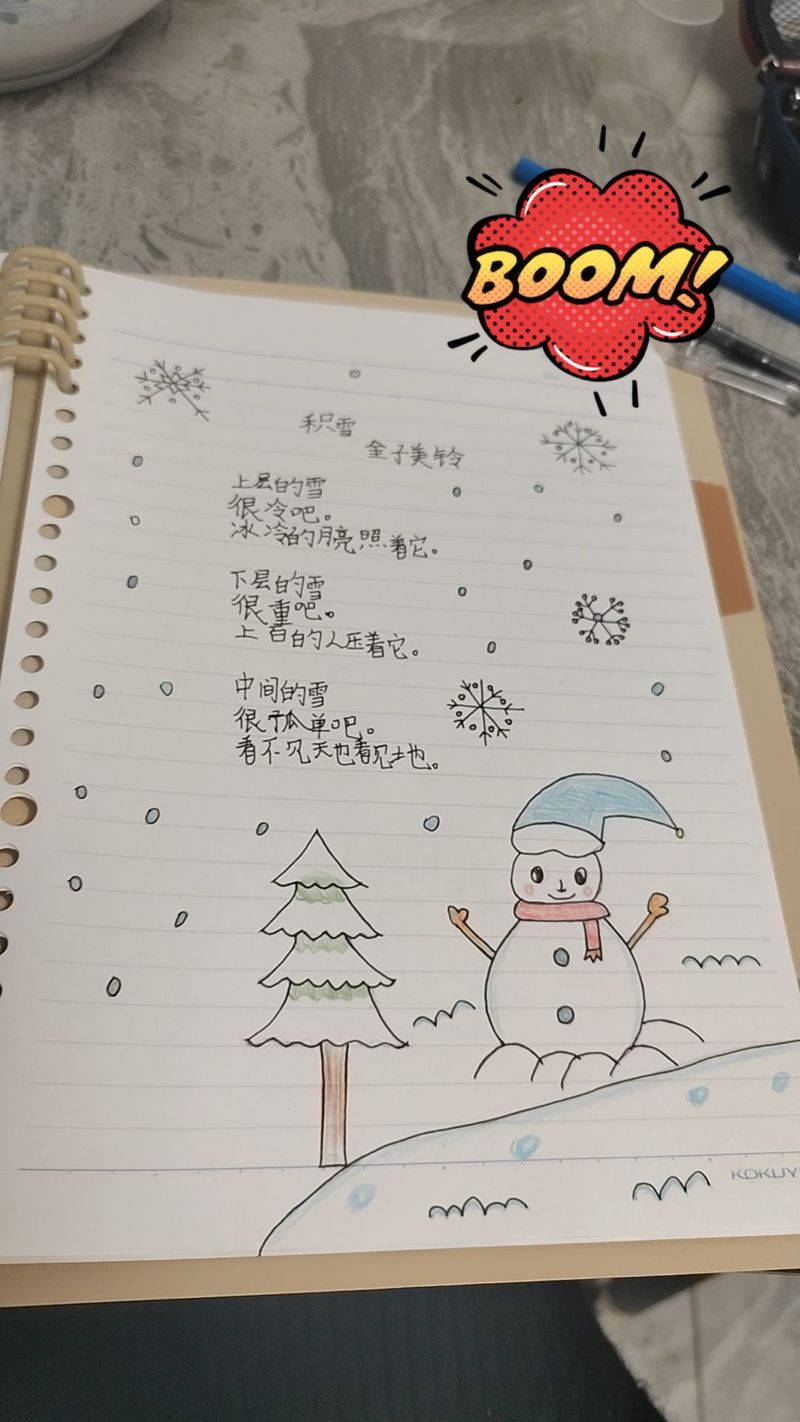 BOOM!
积雪
金子美铃
上层的雪
很冷吧。
冰冷的月亮照着它。
下层的雪
很重吧。
上百的人压着它。
中间的雪
很孤单吧。
看不见天也看见土地。
KOKUY